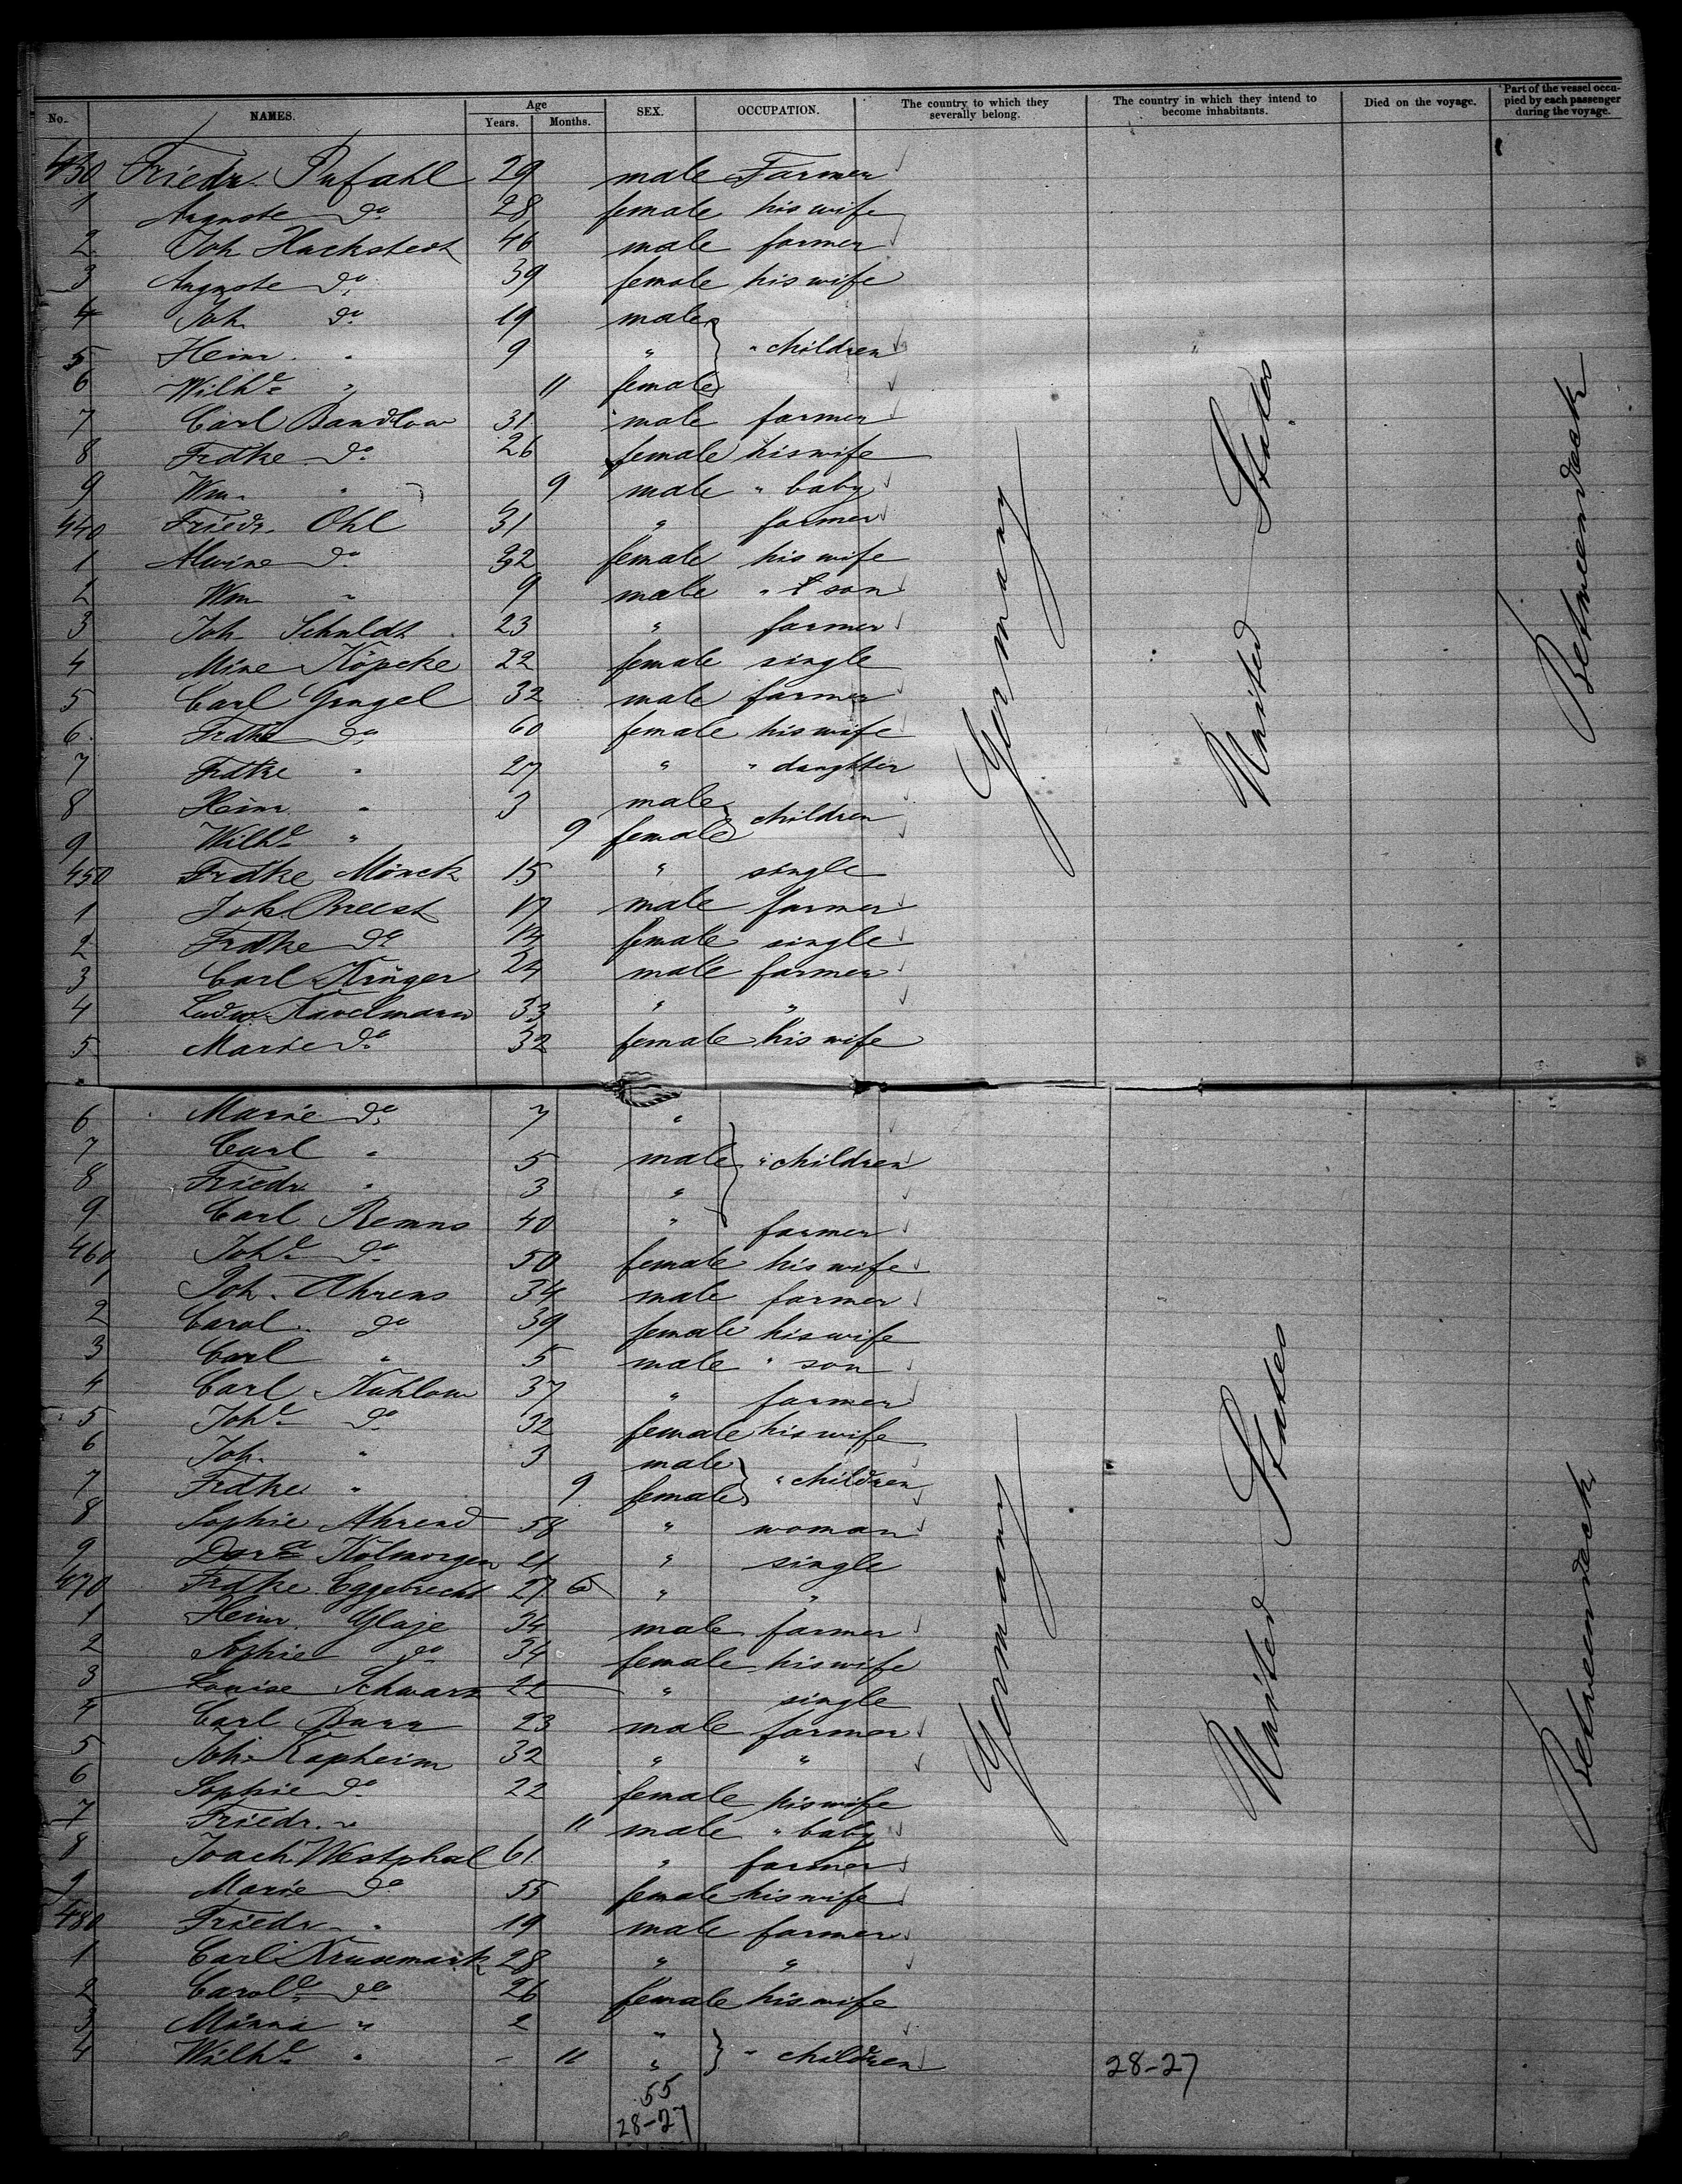 No. NAMES. Age Years. Months. SEX. OCCUPATION. The country to which they severally belong. The country in which they intend to become inhabitants. Died on the voyage. Part of the vessel occupied by each passenger during the voyage.
430 Friedr. Pufahl 29 male Farmer
1 Auguste do 28 female his wife
2 Joh Hackstedt 46 male farmer
3 Auguste do 39 female his wife
4 Joh. do 19 male
5 Heinr. " 9 " " children
6 Wilhe " 11 female
7 Carl Bandlow 31 male farmer
8 Frdke do 26 female his wife
9 Wm. " 9 male " baby
440 Friedr. Ohl 31 " farmer
1 Alwine do 32 female his wife
2 Wm " 9 male " son
3 Joh. Schuldt 23 " farmer
4 Mine Köpcke 22 female single
5 Carl Gengel 32 male farmer
6 Frdke do 60 female his wife
7 Frdke " 27 " " daughter
8 Heinr. " 3 male children
9 Wilhe " 9 female
450 Frdke Mörck 15 " single
1 Joh. Breest 17 male farmer
2 Frdke do 14 female single
3 Carl Krüger 24 male farmer
4 Ludw. Kavelmann 33 " "
5 Marie do 32 female his wife
Germany
United States
Betweendeck
6 Marie do 7 "
7 Carl " 5 male " children
8 Friedr " 3 "
9 Carl Remns 40 " farmer
460 Johe do 50 female his wife
1 Joh. Ahrens 34 male farmer
2 Carol. do 39 female his wife
3 Carl " 5 male " son
4 Carl Kuhlow 37 " farmer
5 Johe do 32 female his wife
6 Joh. " 3 male
7 Frdke " 9 female " children
8 Sophie Ahrend 58 " woman
9 Dora Kölmorgen 21 " single
470 Frdke Eggebrecht 27 6 " "
1 Heinr. Glaje 34 male farmer
2 Sophie do 34 female his wife
3 Louise Schwarz 22 " single
4 Carl Burr 23 male farmer
5 Joh. Kapheim 32 " "
6 Sophie do 22 female his wife
7 Friedr. " 11 male " baby
8 Joach. Westphal 61 " farmer
9 Marie do 55 female his wife
480 Friedr. " 19 male farmer
1 Carl Krusemark 28 " "
2 Carole do 26 female his wife
3 Minna " 2 "
4 Wilhe " - 11 " " children
Germany
United States
Betweendeck
55
28-27
28-27